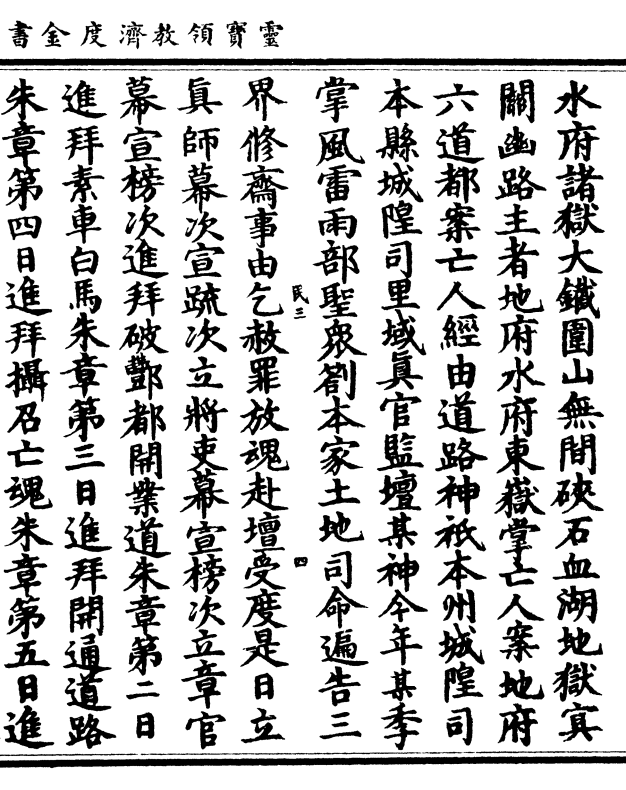 靈寶領教濟度金書
水府諸獄大鐵圍山無間硤石血湖地獄㝠
關幽路主者地府水府東嶽掌亡人案地府
六道都案亡人經由道路神祇本州城隍司
本縣城隍司里域眞官監壇某神今年某季
掌風雷雨部聖衆劄本家土地司命遍告三
界修齋事由乞赦罪放魂赴壇受度是日立
眞師幕次宣䟽次立將吏幕宣榜次立章官
幕宣榜次進拜破酆都開業道朱章第二日
進拜素車白馬朱章第三日進拜開通道路
朱章第四日進拜攝召亡魂朱章第五日進
民三
四